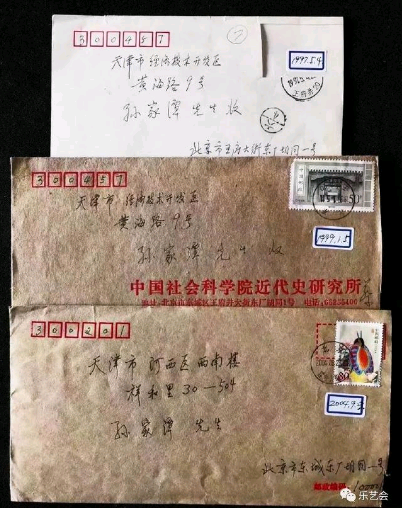 300457
天津市经济技术开发区
黄海路9号
孙家潭先生收
1997.5.4
北京市王府大街东厂胡同一号
300457
天津市经济技术开发区
黄海路9号
孙家潭先生收
1999.1.5
中国社会科学院近代史研究所
地址:北京市东城区王府井大街东厂胡同1号 电话:
300201
天津市河西区西南楼
祥和里30-504
孙家潭 先生
北京市东城东厂胡同一号
邮政编码
乐艺会